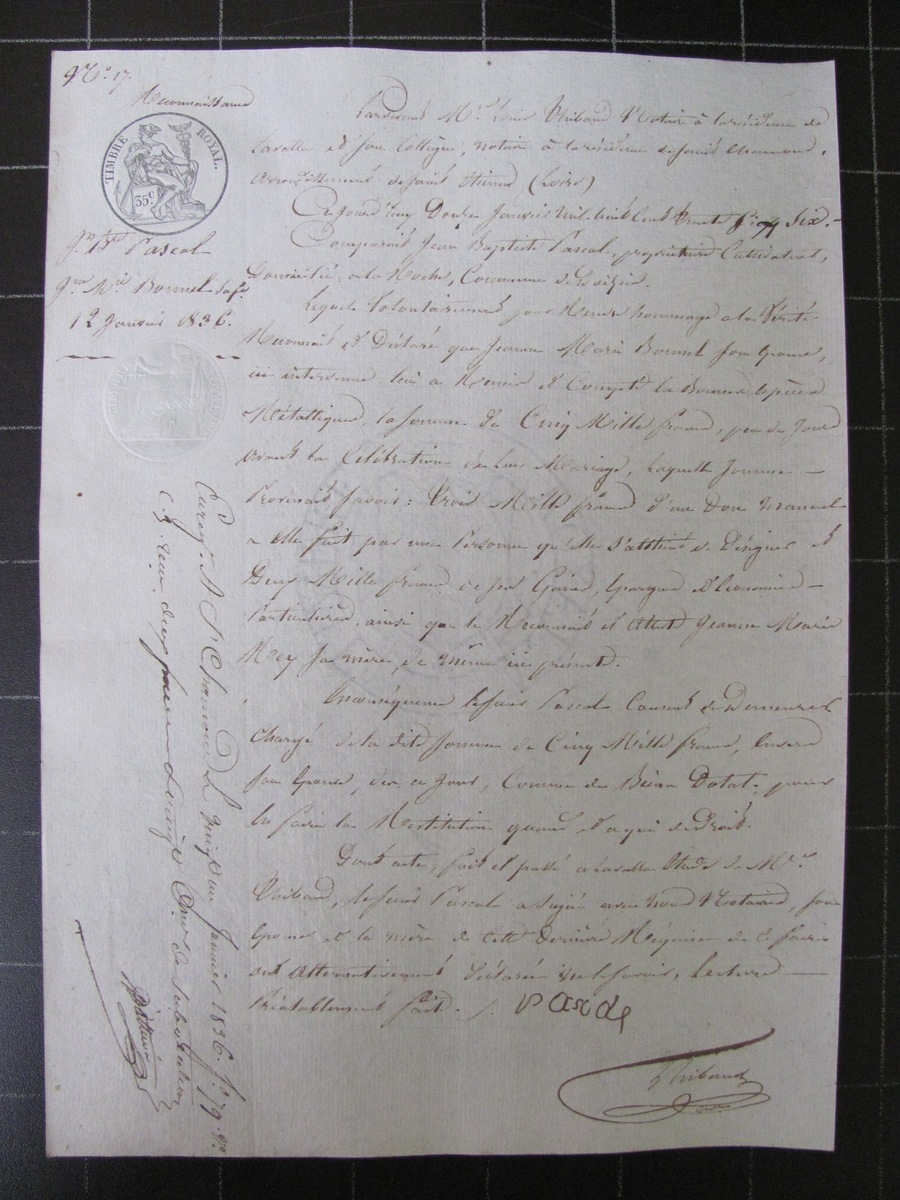 N.° 17.
Reconnaissance
TIMBRE ROYAL.
35 c.
Jn Bte Pascal
Jne Mie Bonnel
12 Janvier 1836.
Pardevant Me Thibaud Notaire à la résidence de
Lavalla et son Collègue, notaire à la résidence de Saint Chamond,
arrondissement de Saint Etienne (Loire)
Cejourd'huy Douze Janvier mil huit cent trente Six.
Comparait Jean Baptiste Pascal, propriétaire Cultivateur,
Domicilié, à la Roche, Commune de
Lequel Volontairement pour Rendre hommage à la Vérité
Reconnait et Déclare que Jeanne Marie Bonnel son Epouse,
ici intervenue lui a Remis et Compté en Bonnes Espèces
Métalliques, la somme de Cinq Mille francs, peu de Jours
avant la Célébration de leur Mariage, laquelle Somme
Provenait savoir : Trois Mille francs d'un Don manuel
a elle fait par une Personne qu'elle s'abstient de Désigner et
Deux Mille francs de ses Gains, Epargnes et Economies
Particulières, ainsi que le Reconnait et atteste Jeanne Marie
Rey sa mère, de même ici présente.
En conséquence le sieur Pascal Consent de Demeurer
Chargé de la dite Somme de Cinq Mille francs, Envers
son Epouse, dès ce Jour, Comme de Biens Dotal, pour
en faire la Restitution quand et a qui de Droit.
Dont acte, fait et passé a Lavalla Etude de Me
Thibaud, le sieur Pascal a signé avec nous Notaires, son
Epouse et la mère de cette dernière Réquises de le faire
ont alternativement Déclaré ne le savoir, Lecture
Préalablement faite.
Pascal
Thibaud
Enregé à St Chamond le vingt un Janvier 1836. fo 79